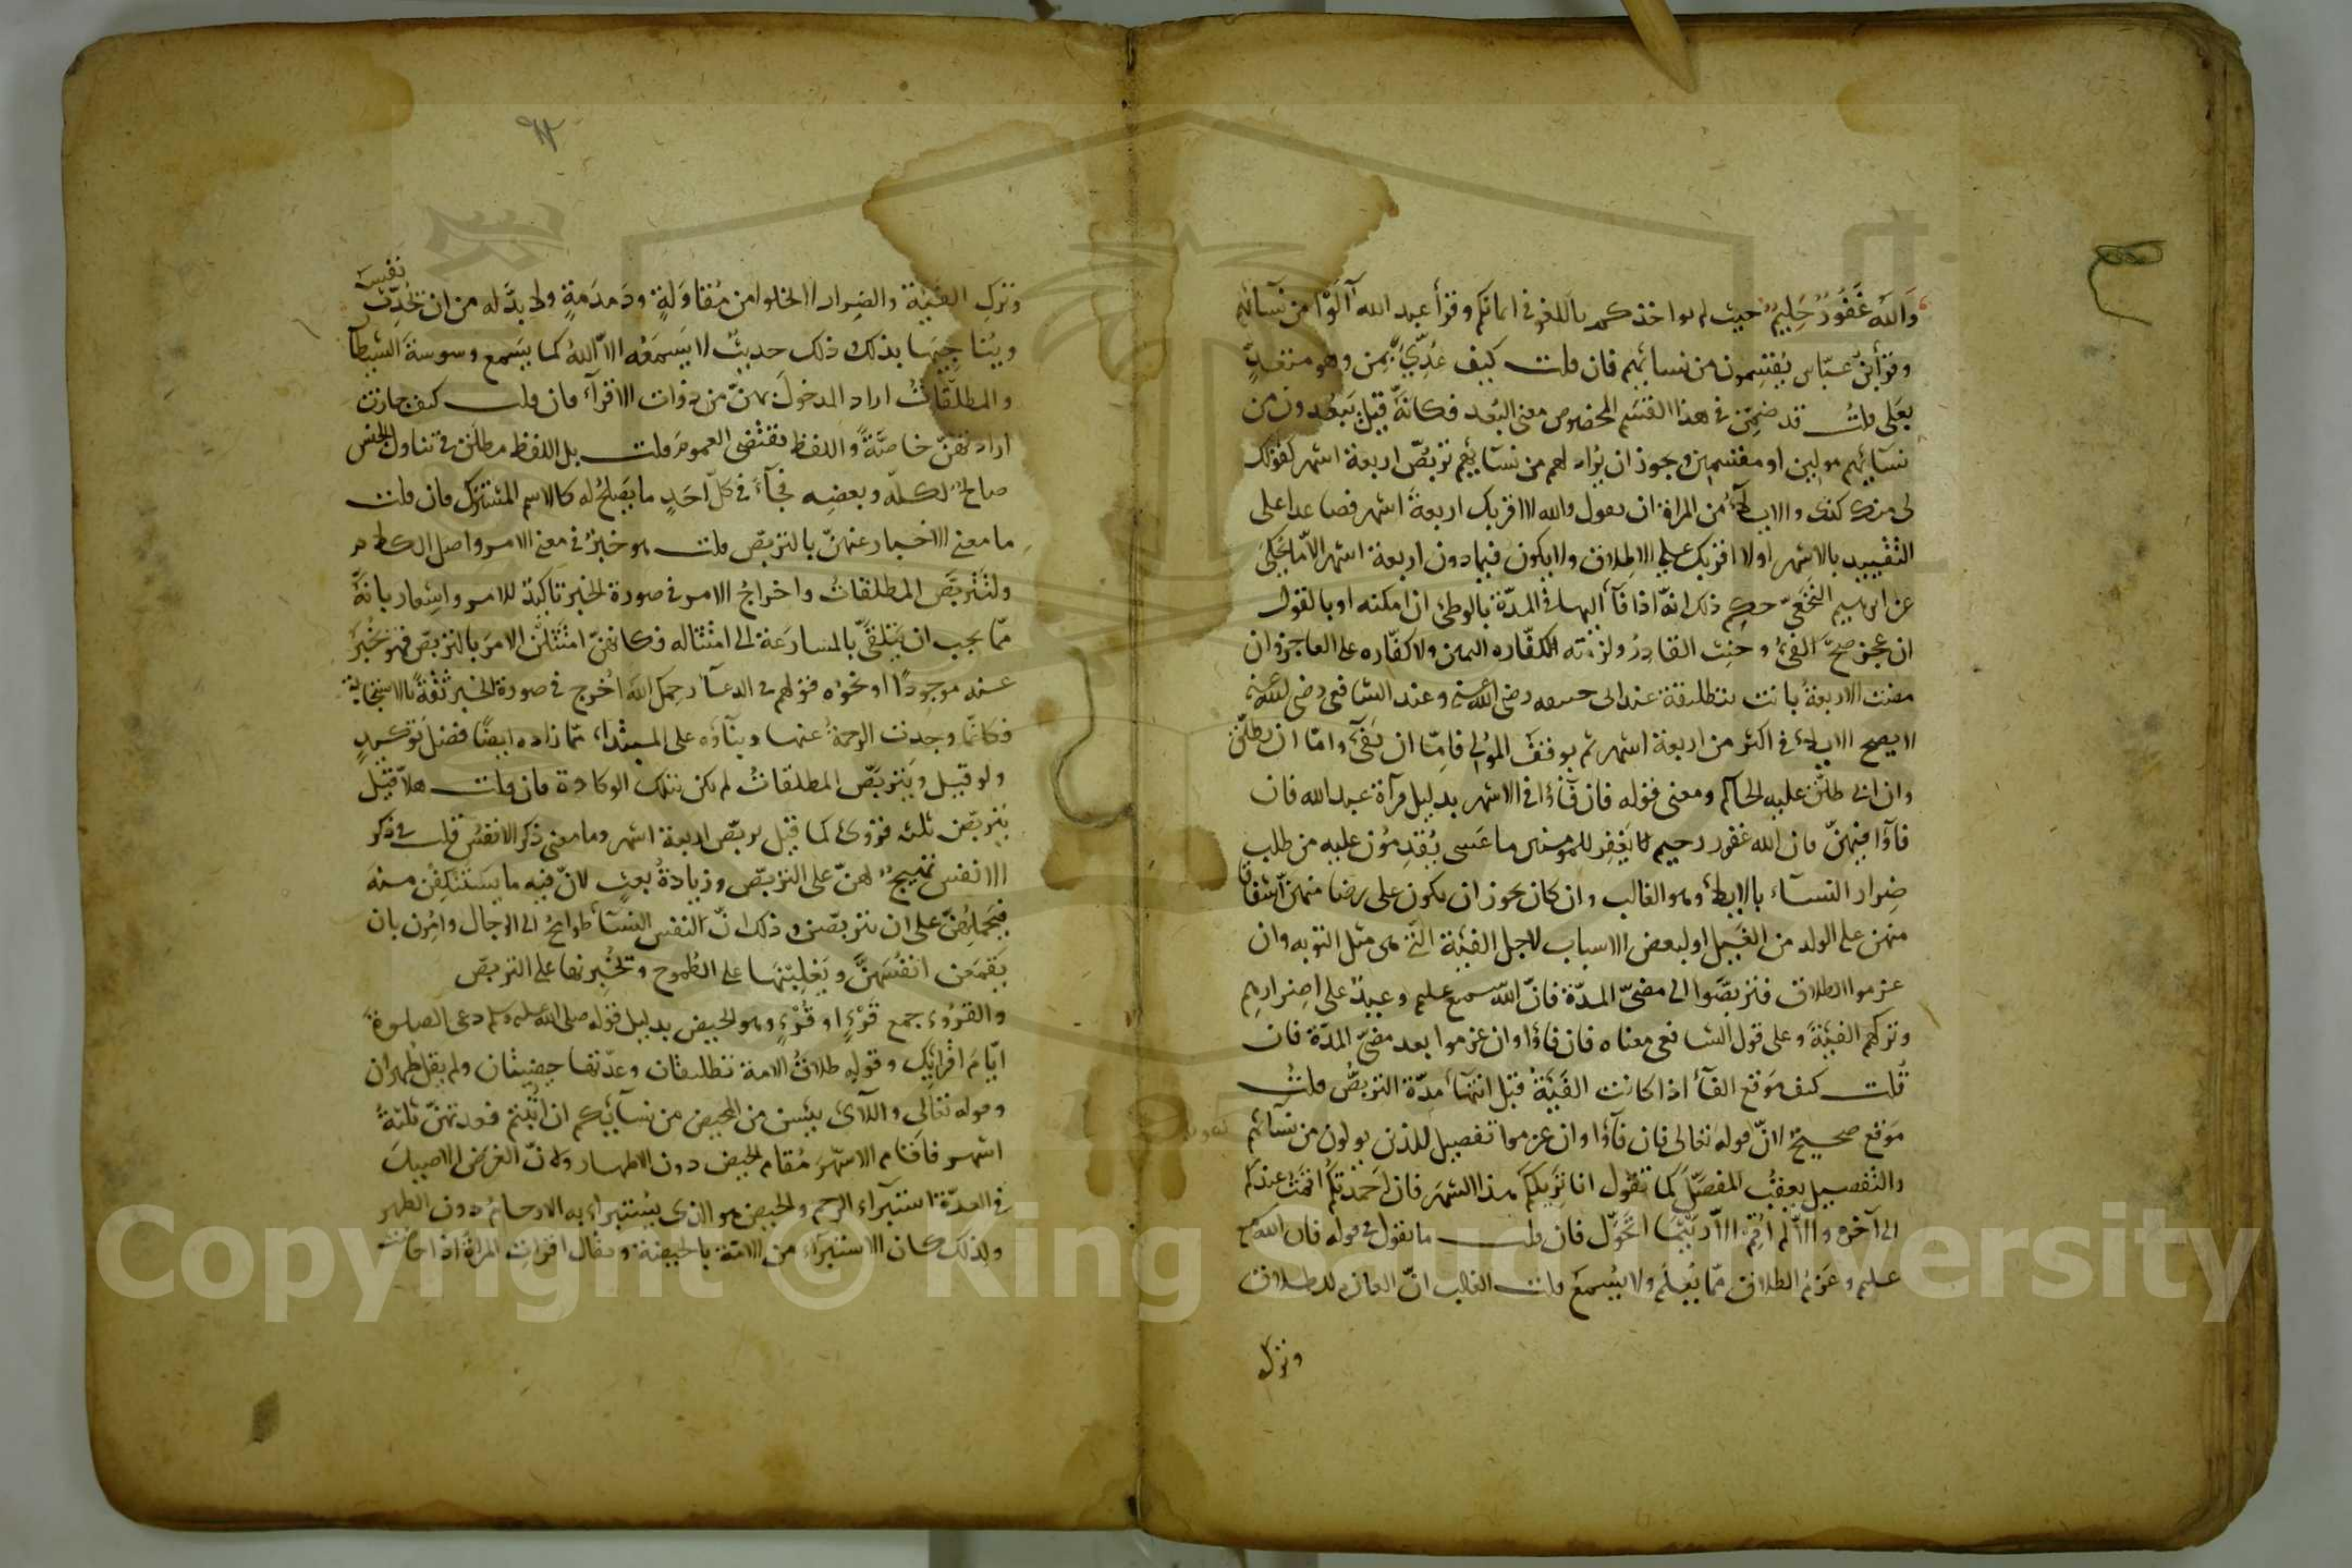 والله غفور حليم حيث لم يواخذكم باللغو في ايمانكم وقرأ عبد الله آلوا من نسائهم
وقرأ ابن عبّاس يقسمون من نسائهم فان قلت كيف عُدّي بمن وهو متعدٍّ
بعلى قلتُ قد ضمّن في هذا القسم المخصوص معنى البُعد فكانّه قيل يبعدون من
نسآئهم مولين او مقسمين ويجوز ان يُراد لهم من نسآئهم تربّص اربعة اشهر كقولك
لى منك كذى والايلآء من المراة ان يقول والله لا اقربك اربعةَ اشهر فصاعدا على
التقييد بالاشهر او لا اقربك على الاطلاق ولا يكون فيما دون اربعة اشهر الا ما يحكى
عن ابرهيم النخعىّ حكم ذلك انه اذا فآء اليها فى المدّة بالوطئ ان امكنه او بالقول
ان عجز صحّ الفئ وحنث القادر ولزمته الكفّاره اليمين ولا كفّاره على العاجز وان
مضت الاربعةُ بانت بتطليقة عند ابى حنيفه رضى الله عنه وعند الشافعى رضى الله عنه
لا يصح الايلاء فى اكثر من اربعة اشهر ثم يوقف المولى فامّا ان يفئ وامّا ان يطلّق
وان ابى طلّق عليه الحاكم ومعنى قوله فان فآؤا فى الاشهر بدليل قرآة عبد الله فان
فآؤا فيهنّ فان الله غفور رحيم يغفر للمومنين ما عسى يُقدمُون عليه من طلب
ضِرار النسآء بالايلاء وهو الغالب وان كان يجوز ان يكون على رضا منهنّ اشفاقا
منهن على الولد من الغَيل او لبعض الاسباب لاجل الفيئة التى هى مثل التوبه وان
عزموا الطلاق فتربصّوا الى مضىّ المدّة فانّ الله سميع عليم وعيدٌ على اصرارهم
وتركهم الفيئة وعلى قول الشافعى معناه فان فاؤا وان عزموا بعد مضىّ المدّة فان
قلت كيف موقع الفآء اذا كانت الفيئةُ قبل انتهآء مدّة التربصّ قلتُ
موقع صحيحٌ لانّ قوله تعالى فان فآؤا وان عزموا تفصيل للذين يولون من نسآئهم
والتفصيل يعقبُ المفصّل كما تقول انا نزيلكم هذا الشهر فان احمدتكم اقمتُ عندكم
الى آخره والّا لم اُقم الّا ريثما اتحوّل فان قلت ما تقول فى قوله فان الله سميع
عليم وعزمُ الطلاق ممّا يُعلَم ولا يُسمع قلت الغالب انّ العازم للطلاق
وترك
وترك الفيئة والضرار لا يخلوا من مقاولةٍ ودمدمةٍ ولا بدّ له من ان يُحدّث نفسَه
ويناجيها بذلك ذلك حديثٌ لا يسمعه الاّ اللهُ كما يسمع وسوسةَ الشيطان
والمطلّقاتُ اراد المدخولَ بهنّ من ذوات الاقرآء فان قلت كيف جازت
ارادتهنّ خاصّةً واللفظ يقتضى العموم قلت بل اللفظ مطلق فى تناول الجنس
صالحٌ لكلّه وبعضه فجآء فى كلّ احدٍ ما يصلحُ له كالاسم المشترك فان قلت
ما معنى الاخبار عنهنّ بالتربّص قلت هو خبرٌ فى معنى الامر واصل الكلام
ولتتربّص المطلقاتُ واخراجُ الامر فى صورة الخبر تاكيدٌ للامر واشعار بانّه
ممّا يجب ان يتلقّى بالمسارعة الى امتثاله فكانهنّ امتثلن الامرَ بالتربّص فهو يخبر
عنه موجودًا ونحوُه قولهم فى الدعآء رحمك الله اُخرج فى صورة الخبر ثقةً بالاستجابة
فكانّما وجدت الرحمةُ عنها وبنآؤه على المبتداء ممّا زاده ايضًا فضلَ توكيدٍ
ولو قيل ويتربّص المطلقاتُ لم يكن بتلك الوكادة فان قلت هلاّ قيل
يتربّصن ثلثه قروئ كما قيل تربّص اربعة اشهر وما معنى ذكر الانفس قلت فى ذكر
الانفس تهييجٌ لهنّ على التربّص وزيادةُ بعثٍ لانّ فيه ما يستنكفن منه
فيحملهنّ على ان يتربّصن وذلك انّ انفس النسآء طوامحُ الى الرجال واُمِرن بان
يقمعن انفسَهنّ ويغلبنها على الطُموح ويُجبرنها على التربّص
والقُروء جمع قَرْءٍ او قُرْءٍ وهو الحيض بدليل قوله صلى الله عليه وسلم دعى الصلوةَ
ايّامَ اقرائك وقوله طلاقُ الامة تطليقتان وعدّتها حيضتان ولم يقل طهران
وقوله تعالى واللآئ يئسن من المحيض من نسآئكم ان ارتبتم فعدتهنّ ثلثةُ
اشهر فاقام الاشهُرَ مُقام الحيض دون الاطهار ولانّ الغرض الاصيلَ
فى العدّة استبرآء الرحم والحيض هو الذى يُستبراء به الارحامُ دون الطهر
ولذلك كان الاستبرآء من الامة بالحيضة ويقال اقرات المراة اذا حاضت